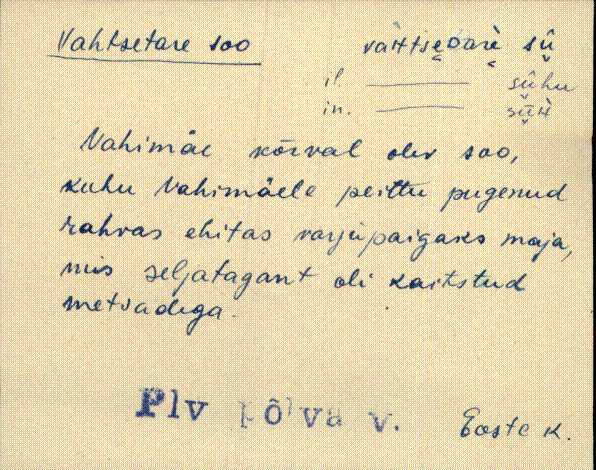 Vahtsetare soo vaʜtse̬Darè̬ sṳ̂
il. ——— sṳ̂hu
in. ——— sṳ̀ʜ
Vahimäe kõrval olev soo,
kuhu Vahimäele peittu pugenud
rahvas ehitas varjupaigaks maja,
mis seljatagant oli kaitstud
metsadega.
Plv Põlva v. Eoste k.